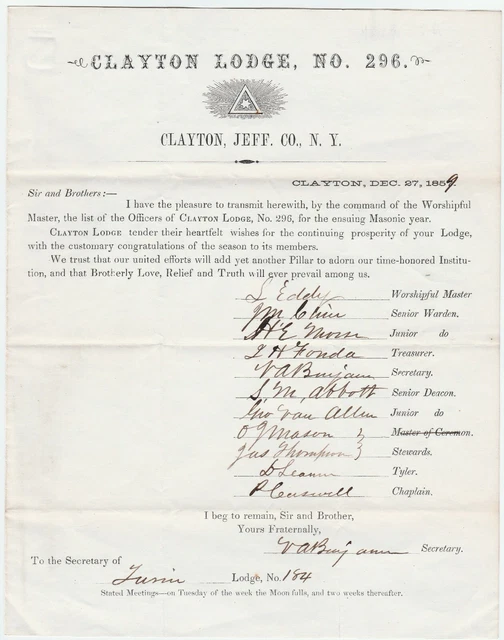 CLAYTON LODGE, NO. 296.
CLAYTON, JEFF. CO., N. Y.
CLAYTON, DEC. 27, 1859.
Sir and Brothers:—
I have the pleasure to transmit herewith, by the command of the Worshipful
Master, the list of the Officers of CLAYTON LODGE, No. 296, for the ensuing Masonic year.
CLAYTON LODGE tender their heartfelt wishes for the continuing prosperity of your Lodge,
with the customary congratulations of the season to its members.
We trust that our united efforts will add yet another Pillar to adorn our time-honored Institu-
tion, and that Brotherly Love, Relief and Truth will ever prevail among us.
S Eddy Worshipful Master
Senior Warden.
H E Morse Junior do
T H Fonda Treasurer.
V A Benjamin Secretary.
S, M, Abbott Senior Deacon.
Geo Van Allen Junior do
O J Mason } Master of Ceremon.
Jas Thompson } Stewards.
Tyler.
P Caswell Chaplain.
I beg to remain, Sir and Brother,
Yours Fraternally,
V A Benjamin Secretary.
To the Secretary of
Turin Lodge, No. 184
Stated Meetings—on Tuesday of the week the Moon fulls, and two weeks thereafter.